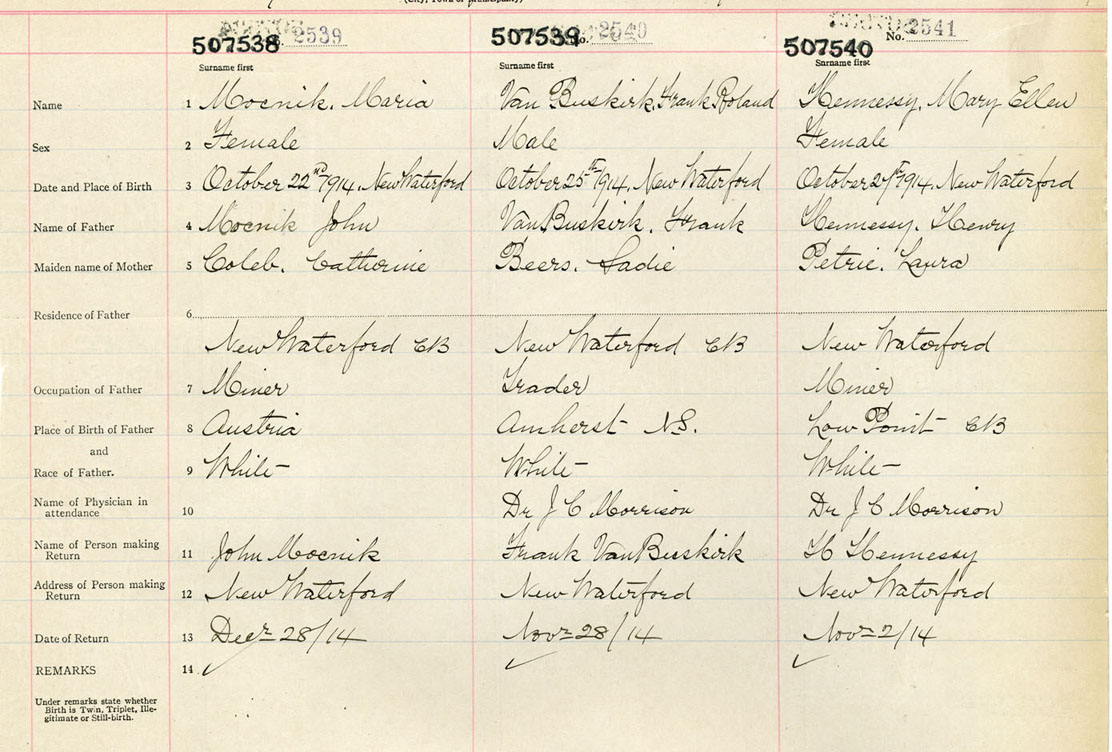 (City, Town or Municipality)
507538 2539 507539 No. 2540 507540 No. 2541
Surname first Surname first Surname first
Name 1 Mocnik, Maria Van Buskirk, Frank Roland Hennessy, Mary Ellen
Sex 2 Female Male Female
Date and Place of Birth 3 October 22nd 1914, New Waterford October 25th 1914, New Waterford October 1914, New Waterford
Name of Father 4 Mocnik John Van Buskirk, Frank Hennessy, Henry
Maiden name of Mother 5 Coleb, Catherine Beers, Sadie Petrie, Laura
Residence of Father 6
New Waterford CB New Waterford CB New Waterford
Occupation of Father 7 Miner Trader Miner
Place of Birth of Father 8 Austria Amherst N.S. Low Point CB
and
Race of Father. 9 White White White
Name of Physician in
attendance 10 Dr J C Morrison Dr J C Morrison
Name of Person making
Return 11 John Mocnik Frank Van Buskirk H Hennessy
Address of Person making
Return 12 New Waterford New Waterford New Waterford
Date of Return 13 Decr 28/14 Novr 28/14 Novr 2/14
REMARKS 14
Under remarks state whether
Birth is Twin, Triplet, Ille-
gitimate or Still-birth.